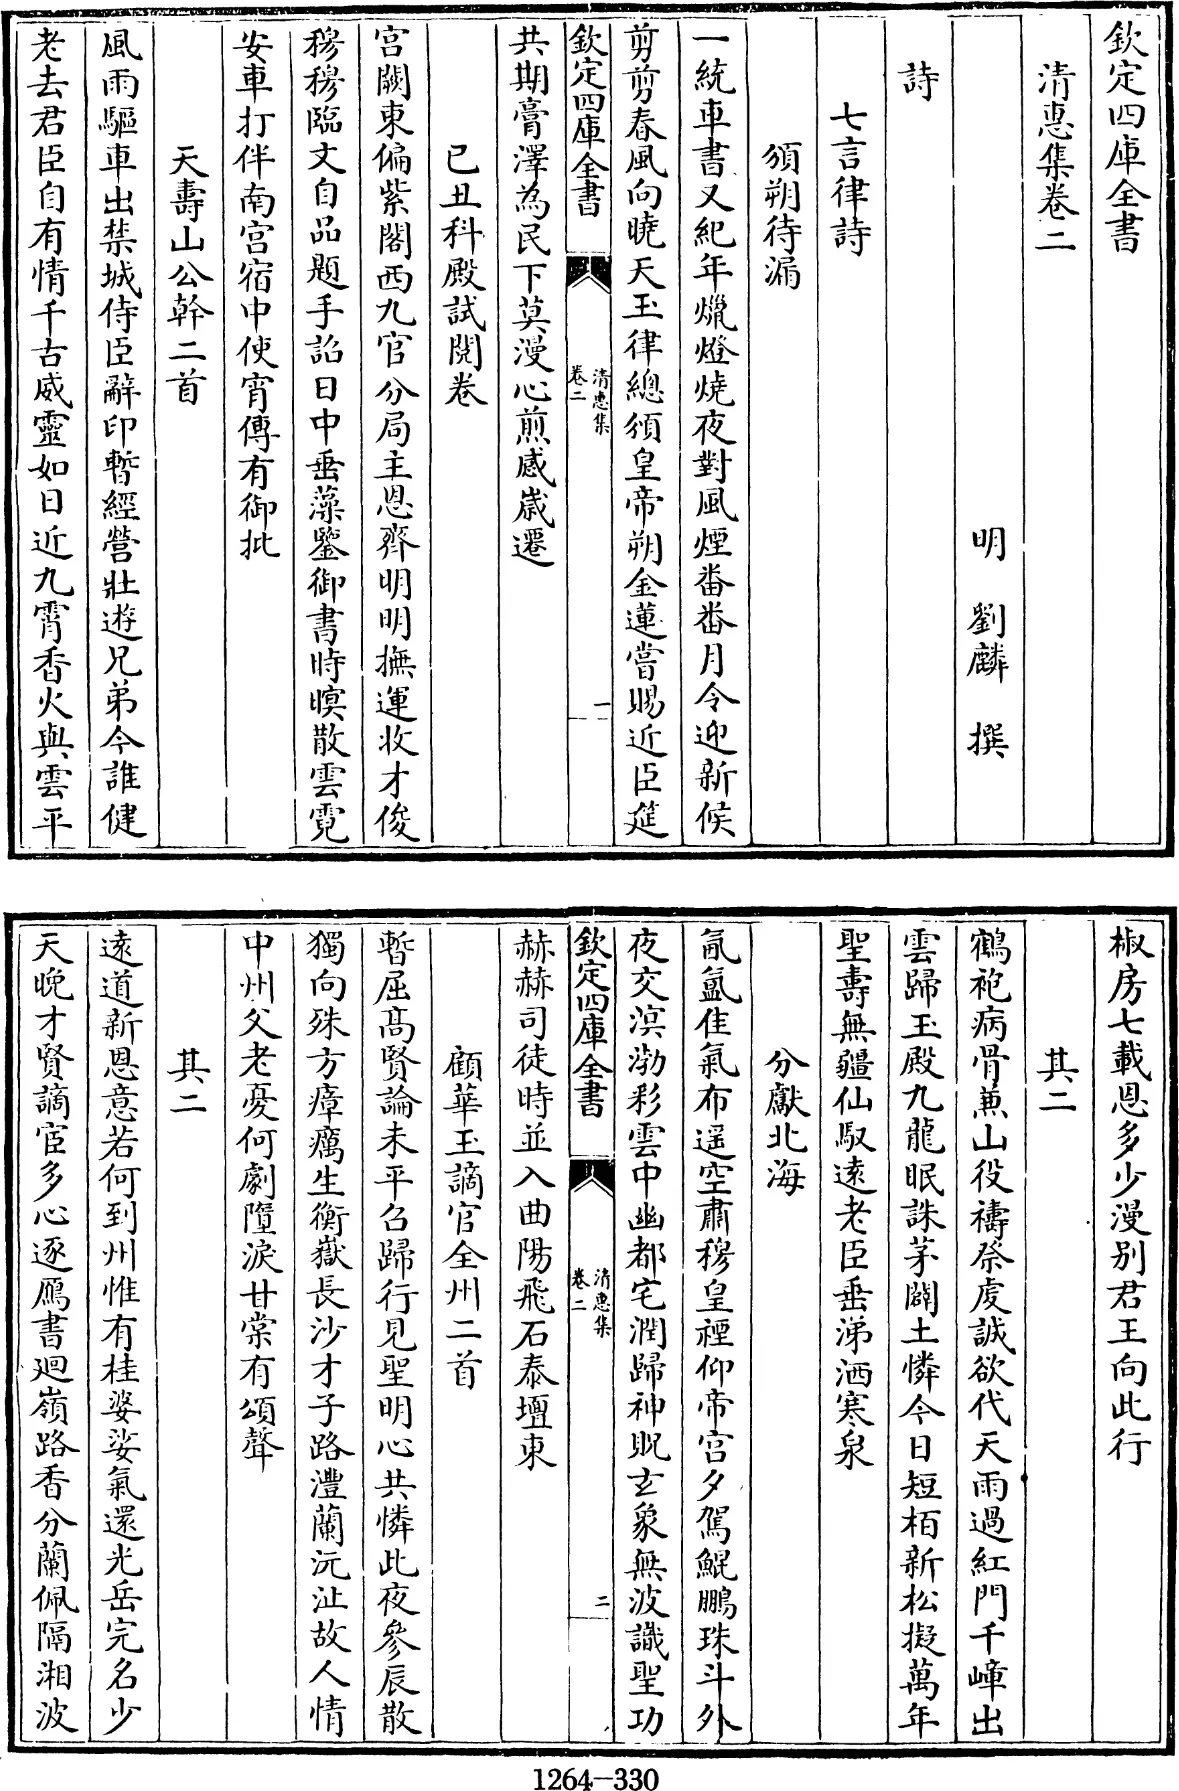 欽定四庫全書
清惠集卷二
明 劉麟 撰
詩
七言律詩
頒朔待漏
一統車書又紀年爉燈燒夜對風煙畨畨月令迎新候
剪剪春風向曉天玉律總頒皇帝朔金蓮嘗賜近臣筵
欽定四庫全書
清惠集
卷二
一
共期膏澤為民下莫漫心煎感歳遷
已丑科殿試閱卷
宮闕東偏紫閣西九官分局主恩齊明明撫運收才俊
穆穆臨文自品題手詔日中垂藻鑒御書時暝散雲霓
安車打伴南宮宿中使宵傳有御批
天壽山公幹二首
風雨驅車出禁城侍臣辭印暫經營壯遊兄弟今誰健
老去君臣自有情千古威靈如日近九霄香火與雲平
椒房七載恩多少漫別君王向此行
其二
鶴袍病骨兼山役禱祭虔誠欲代天雨過紅門千嶂出
雲歸玉殿九龍眠誅茅闢土憐今日短栢新松擬萬年
聖壽無疆仙馭遠老臣垂涕洒寒泉
分獻北海
氤氳佳氣布遥空肅穆皇禋仰帝宮夕駕鯤鵬珠斗外
夜交溟渤彩雲中幽都宅潤歸神貺玄象無波識聖功
欽定四庫全書
清惠集
卷二
二
赫赫司徒時並入曲陽飛石泰壇東
顧華玉謫官全州二首
暫屈髙賢論未平召歸行見聖明心共憐此夜參辰散
獨向殊方瘴癘生衡嶽長沙才子路澧蘭沅沚故人情
中州父老憂何劇墮淚甘棠有頌聲
其二
遠道新恩意若何到州惟有桂婆娑氣還光岳完名少
天晚才賢謫宦多心逐鴈書廻嶺路香分蘭佩隔湘波
1264—330